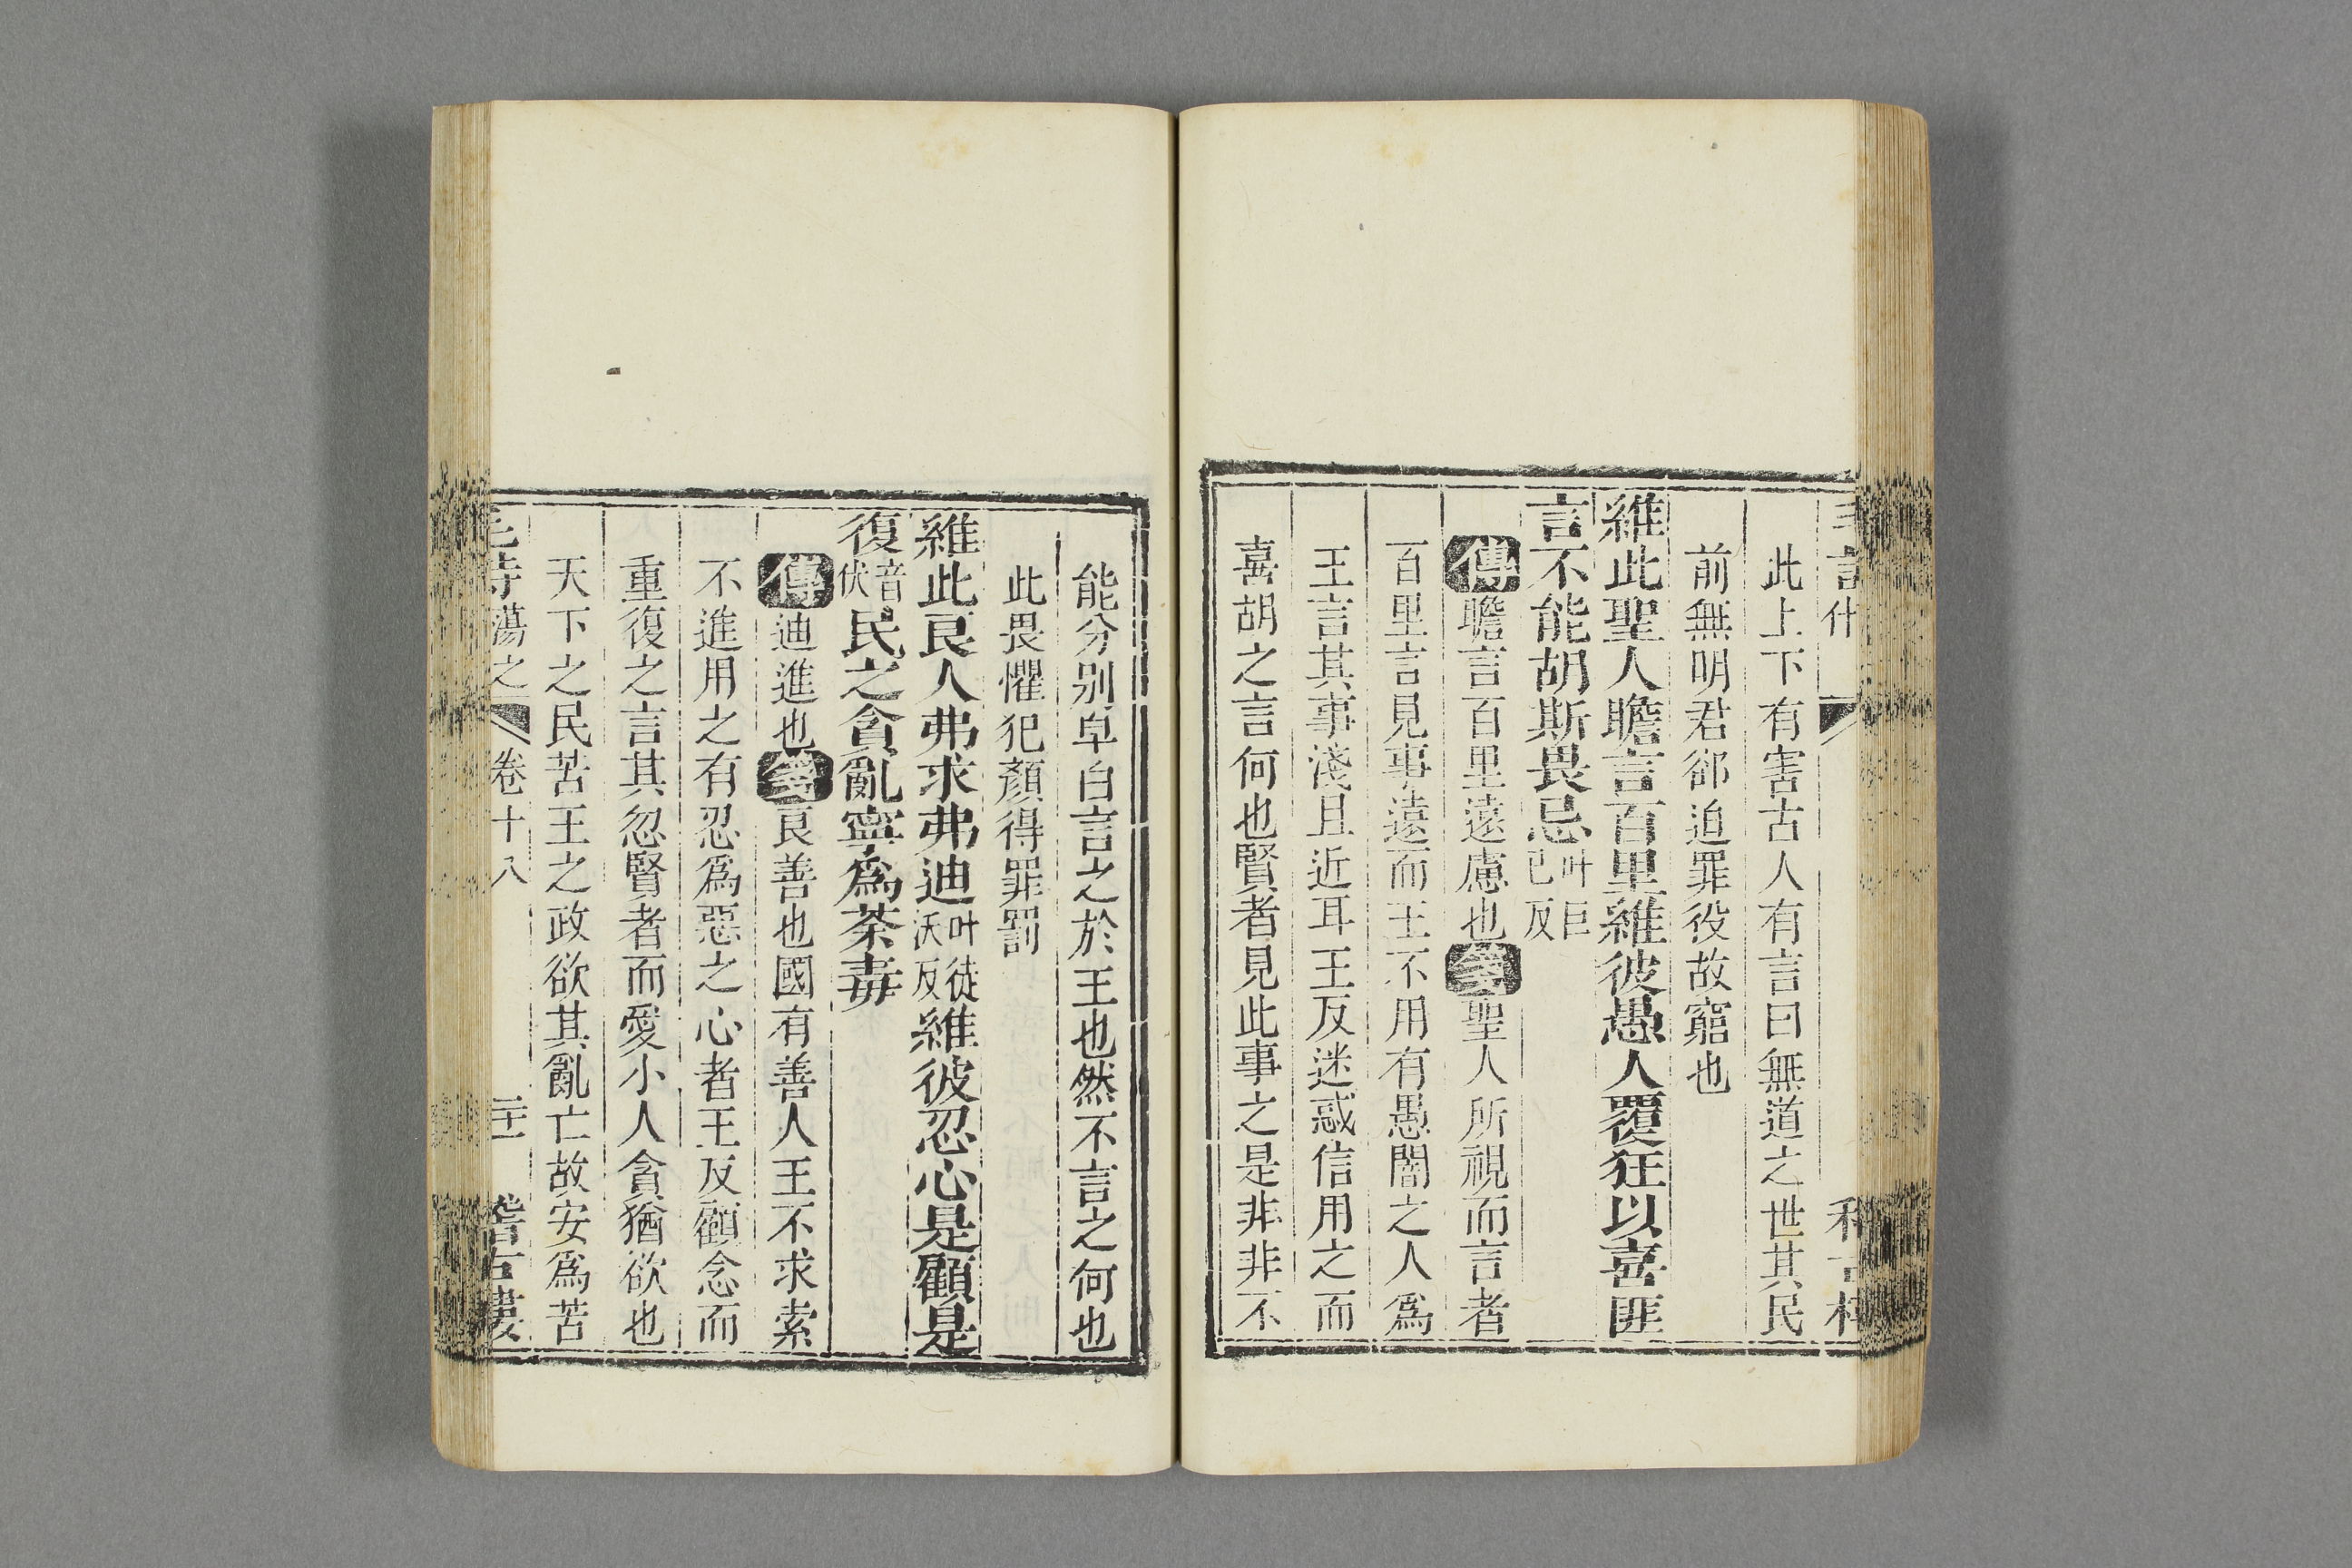 此上下有害古人有言曰無道之世其民
前無明君郤迫罪役故窮也
維此聖人瞻言百里維彼愚人覆狂以喜匪
言不能胡斯畏忌叶巨已反
傳瞻言百里遠慮也箋聖人所視而言者
百里言見事遠而王不用有愚闇之人爲
王言其事淺且近耳王反迷惑信用之而
喜胡之言何也賢者見此事之是非非不
能分别皁白言之於王也然不言之何也
此畏懼犯顏得罪罰
維此良人弗求弗迪叶徒沃反維彼忍心是顧是
復音伏民之貪亂寧爲荼毒
傳迪進也箋良善也國有善人王不求索
不進用之有忍爲惡之心者王反顧念而
重復之言其忽賢者而愛小人貪猶欲也
天下之民苦王之政欲其亂亡故安爲苦
毛詩蕩之 卷十八 二十一 稽古樓